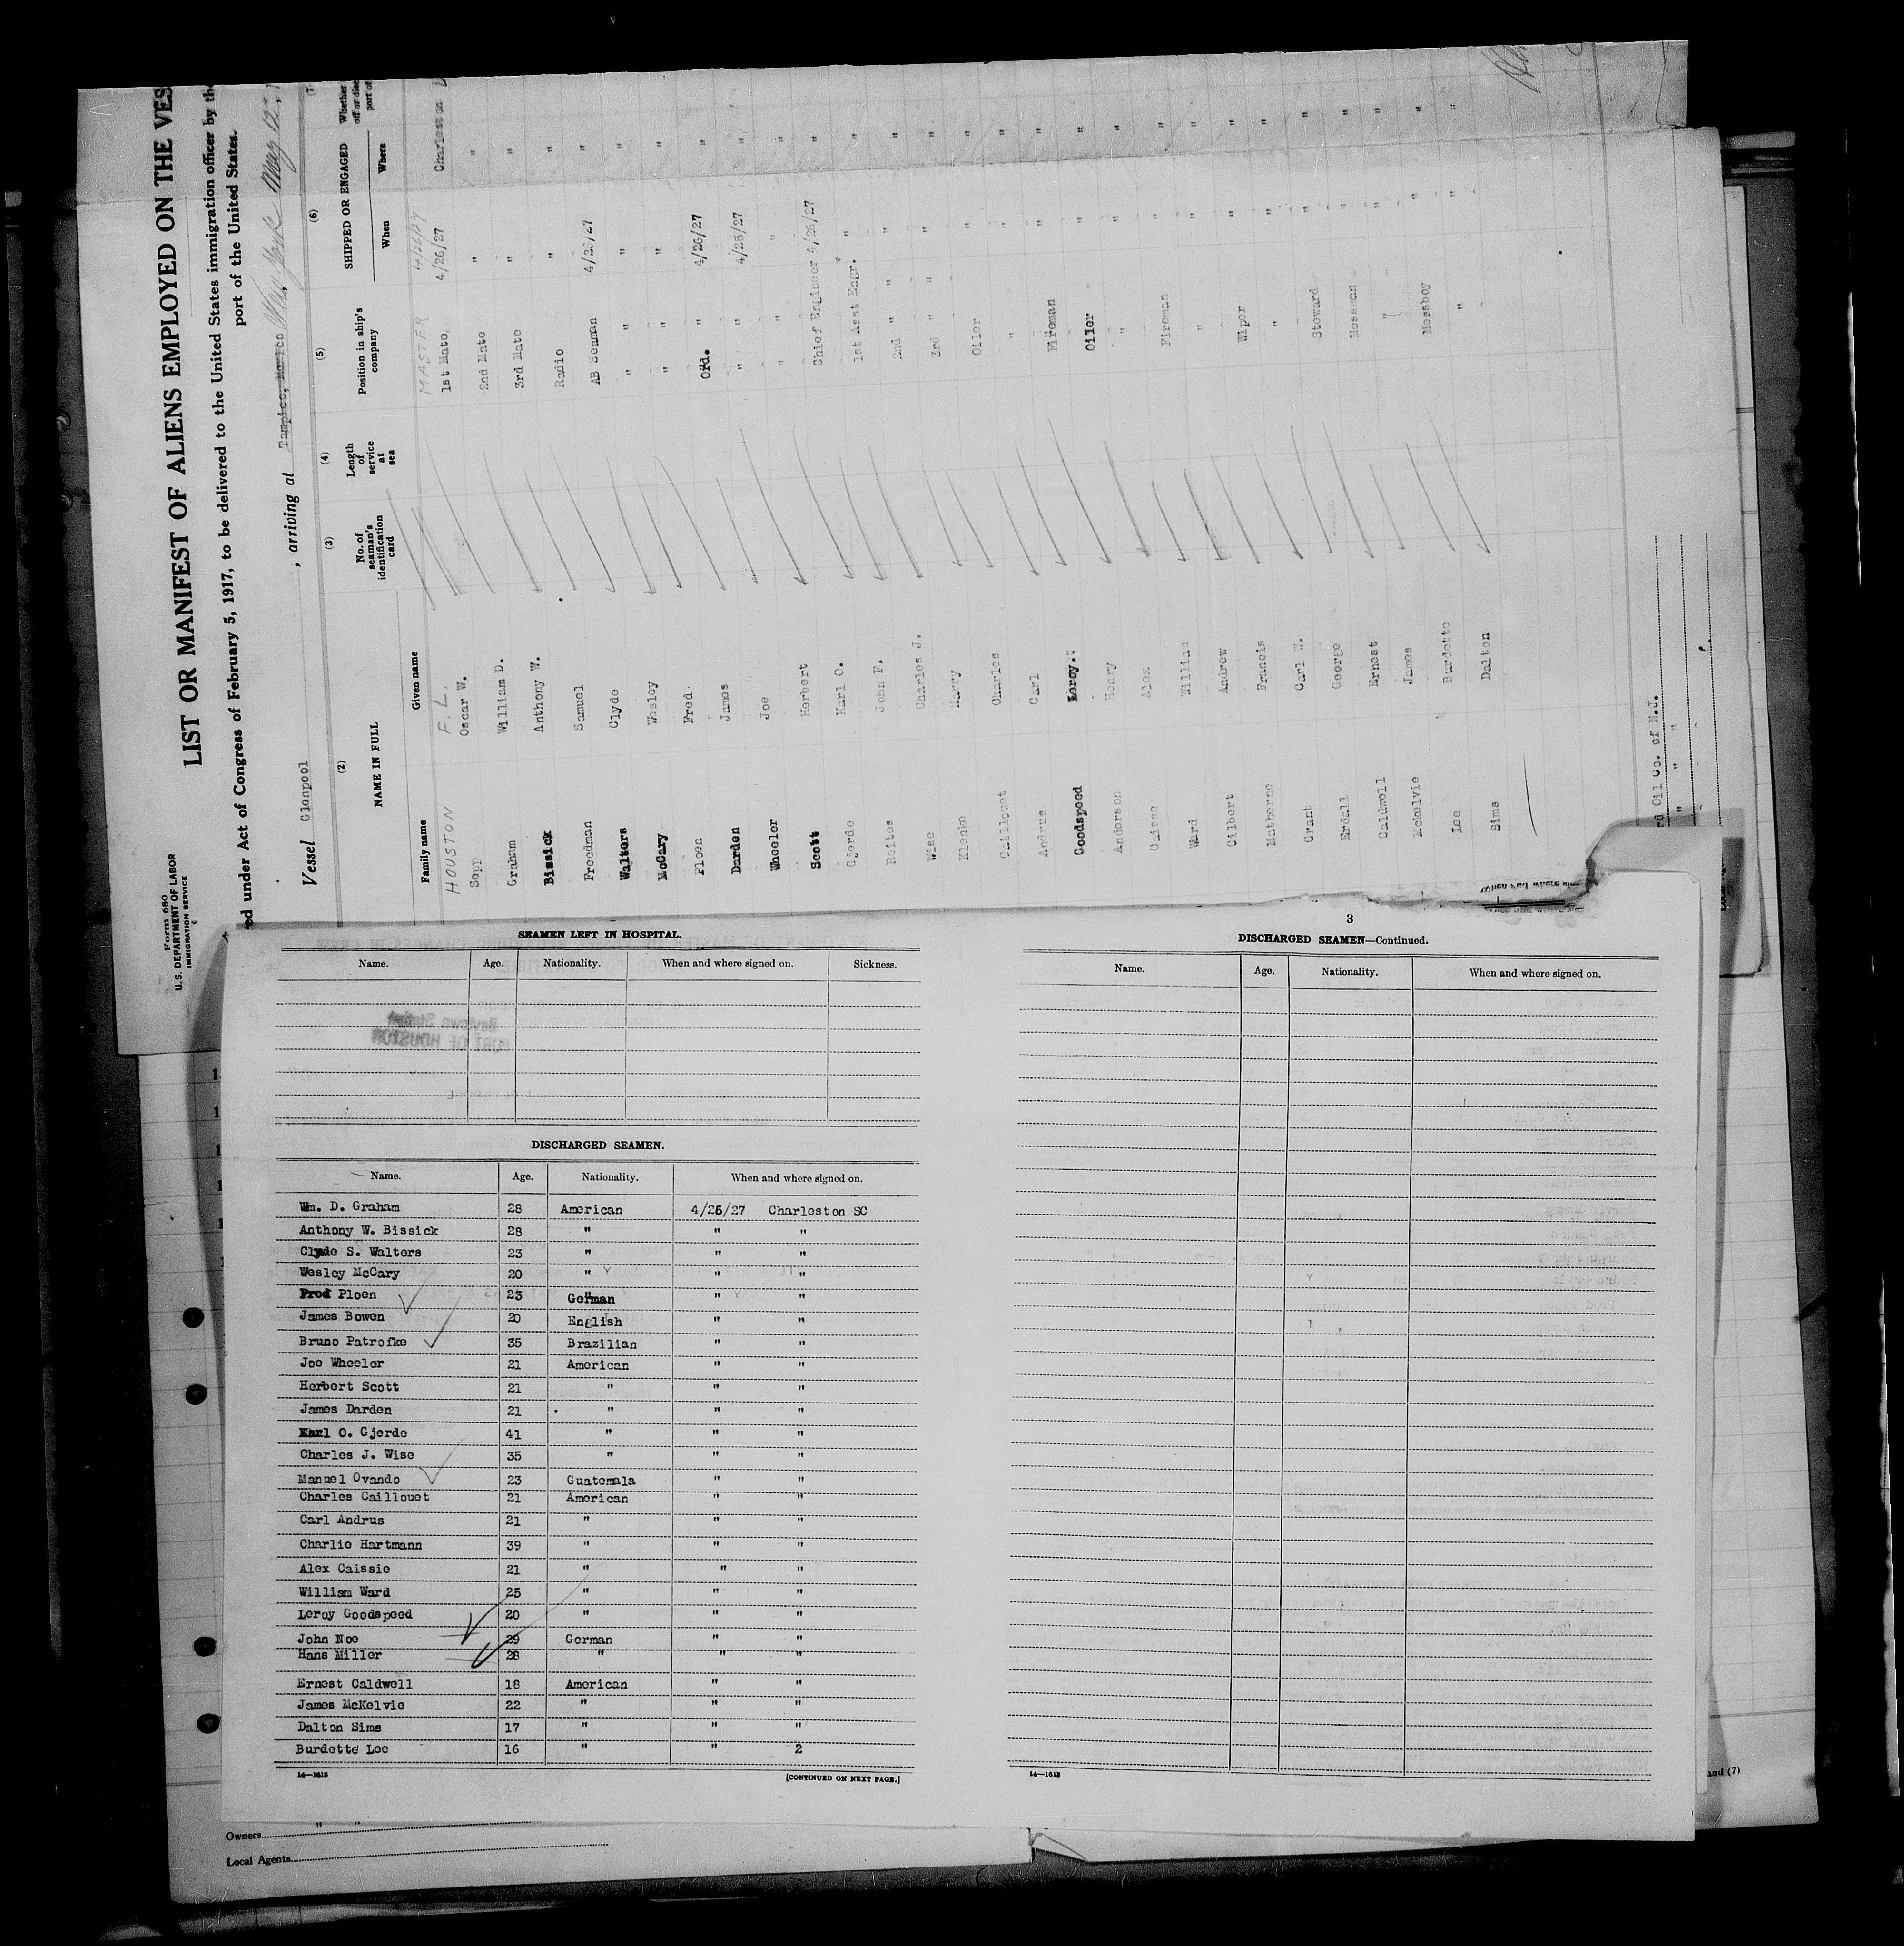 Form 680
U. S. DEPARTMENT OF LABOR
IMMIGRATION SERVICE
LIST OR MANIFEST OF ALIENS EMPLOYED ON THE VES
ed under Act of Congress of February 5, 1917, to be delivered to the United States immigration officer by the
port of the United States.
Vessel Glenpool , arriving at Tampico, Mexico New York May 12,
(2) (3) (4) (5) (6) (7
NAME IN FULL No. of seaman's identification card Length of service at sea Position in ship's company SHIPPED OR ENGAGED Whether
Family name Given name When Where
HOUSTON F. L. MASTER 4/26/27
Sepp Oscar W. 1st Mate, 4/26/27 Charleston
Graham William D. 2nd Mate " "
Bissick Anthony W. 3rd Mate " "
Freedman Samuel Radio " "
Walters Clyde AB Seaman 4/25/27 "
McCary Wesley " " "
Ploen Fred. " " "
Darden James Ord. 4/26/27 "
Wheeler Joe " 4/25/27 "
Scott Herbert " " "
Gjerde Karl O. Chief Engineer 4/26/27 "
Reites John F. 1st Asst Engr. " "
Wise Charles J. 2nd " " "
Klenke Harry 3rd " " "
Caillouet Charles Oiler " "
Andrus Carl " " "
Goodspeed Leroy. Fireman " "
Anderson Henry Oiler " "
Caisse Alex " " "
Ward William Fireman " "
Gilbert Andrew " " "
Matherne Francis Wiper " "
Grant Carl W. " " "
Erdell George Steward " "
Caldwell Ernest Messman " "
Mckelvie James " "
Lee Burdette Messboy " "
Sims Dalton " " "
rd Oil Co. of N.J.
SEAMEN LEFT IN HOSPITAL.
Name. Age. Nationality. When and where signed on. Sickness.
DISCHARGED SEAMEN.
Name. Age. Nationality. When and where signed on.
Wm. D. Graham 28 American 4/26/27 Charleston SC
Anthony W. Bissick 28 " " "
Clyde S. Walters 23 " " "
Wesley McCary 20 " " "
Fred Ploen 23 German " "
James Bowen 20 English " "
Bruno Patrofke 35 Brazilian " "
Joe Wheeler 21 American " "
Herbert Scott 21 " " "
James Darden 21 " " "
Karl O. Gjerde 41 " " "
Charles J. Wise 35 " " "
Manuel Ovando 23 Guatemala " "
Charles Caillouet 21 American " "
Carl Andrus 21 " " "
Charlie Hartmann 39 " " "
Alex Caissie 21 " " "
William Ward 25 " " "
Leroy Goodspeed 20 " " "
John Noe 29 German " "
Hans Miller 28 " " "
Ernest Caldwell 18 American " "
James McKelvie 22 " " "
Dalton Sims 17 " " "
Burdette Lee 16 " " 2
14—1613 [CONTINUED ON NEXT PAGE.]
3
DISCHARGED SEAMEN—Continued.
Name. Age. Nationality. When and where signed on.
14—1613
and (7)
Owners
Local Agents